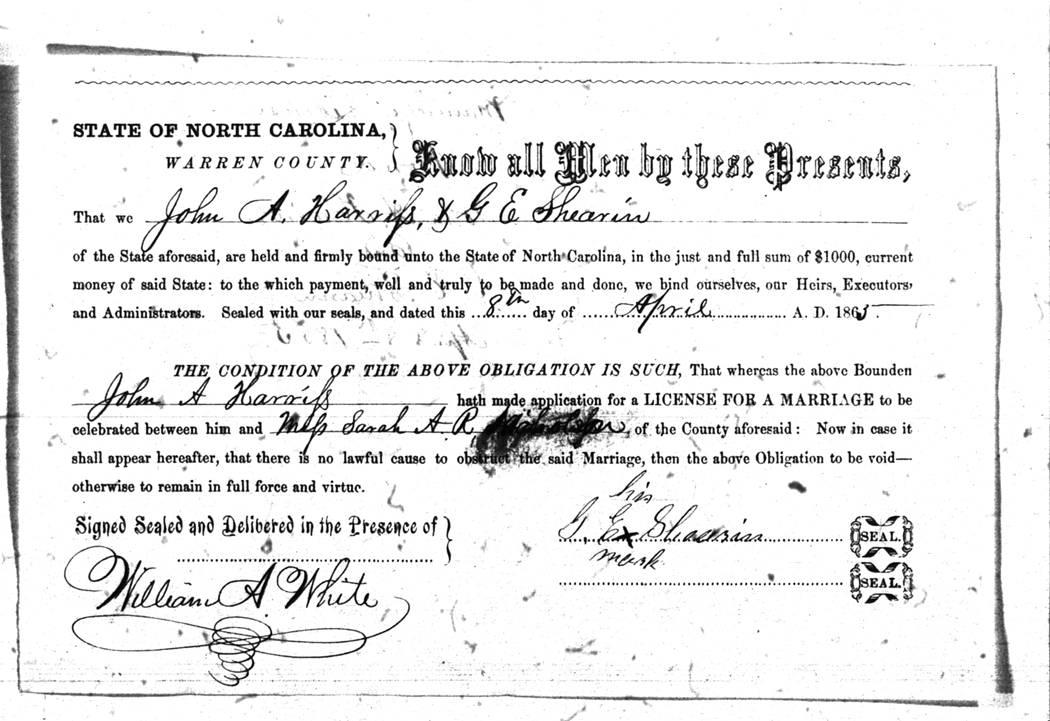 STATE OF NORTH CAROLINA,
WARREN COUNTY.
Know all Men by these Presents,
That we John A. Harriss, & G E Shearin
of the State aforesaid, are held and firmly bound unto the State of North Carolina, in the just and full sum of $1000, current
money of said State: to the which payment, well and truly to be made and done, we bind ourselves, our Heirs, Executors
and Administrators. Sealed with our seals, and dated this 8th day of April A. D. 1865.
THE CONDITION OF THE ABOVE OBLIGATION IS SUCH, That whereas the above Bounden
John A Harriss hath made application for a LICENSE FOR A MARRIAGE to be
celebrated between him and Miss Sarah A. R. of the County aforesaid: Now in case it
shall appear hereafter, that there is no lawful cause to obstruct the said Marriage, then the above Obligation to be void—
otherwise to remain in full force and virtue.
Signed Sealed and Delivered in the Presence of
William A White
his
G. E x Shearin
mark
SEAL.
SEAL.